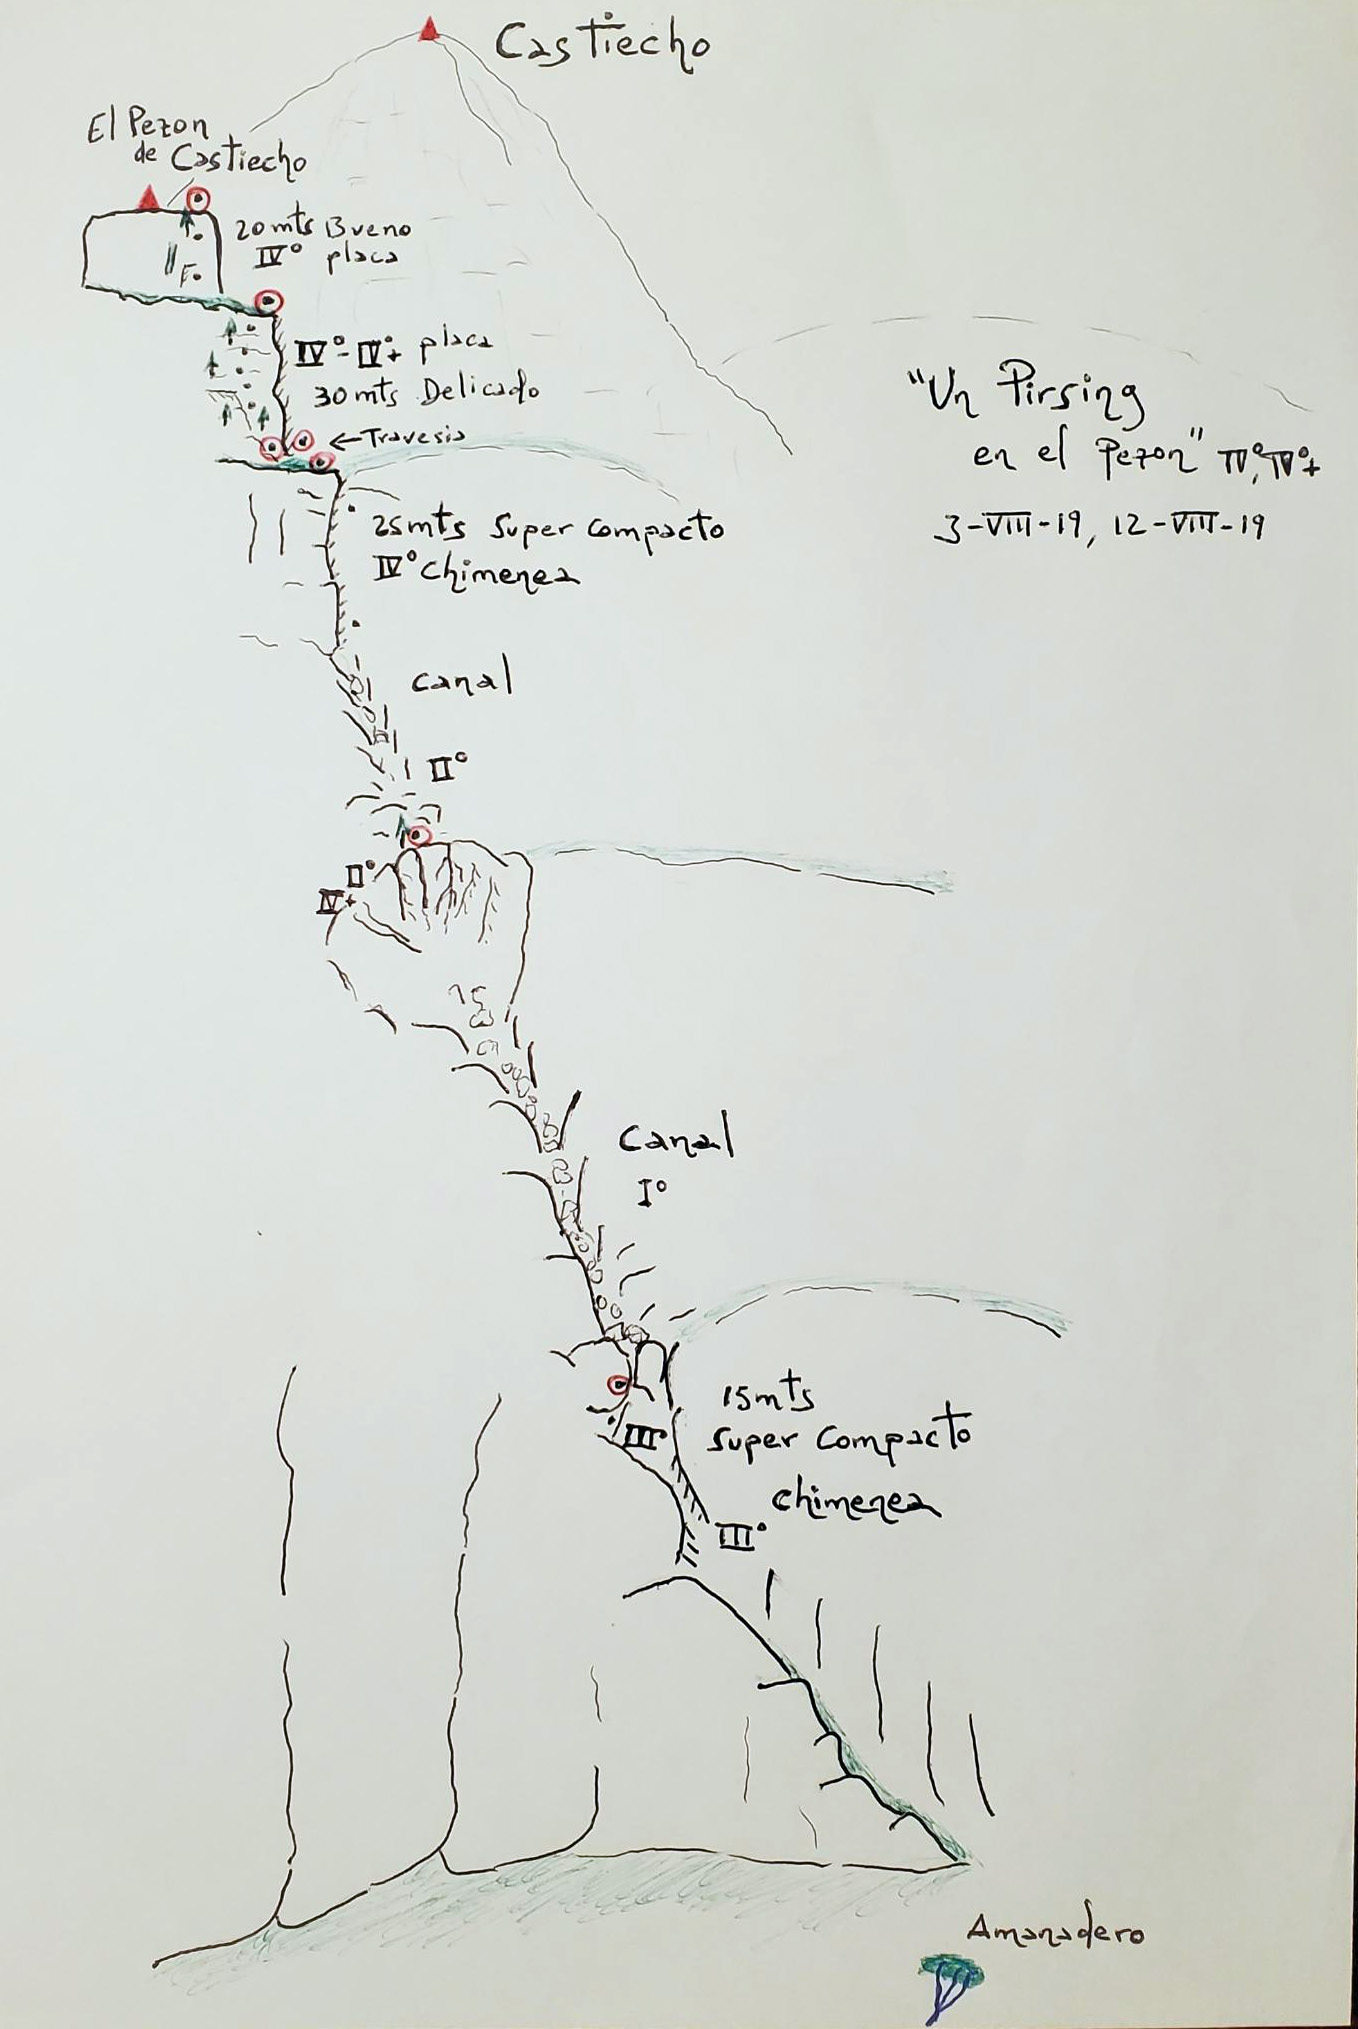 Castiecho
El Pezon
de Castiecho
20 mts Bueno
IVº placa
F
IVº-IVº+ placa
30 mts Delicado
←Travesia
"Un Pirsing
en el Pezon" IVº, IVº+
3-VIII-19, 12-VIII-19
25 mts Super Compacto
IVº Chimenea
Canal
IIº
IIº
IV+
Canal
Iº
15 mts
Super Compacto
Chimenea
IIIº
IIIº
Amanadero